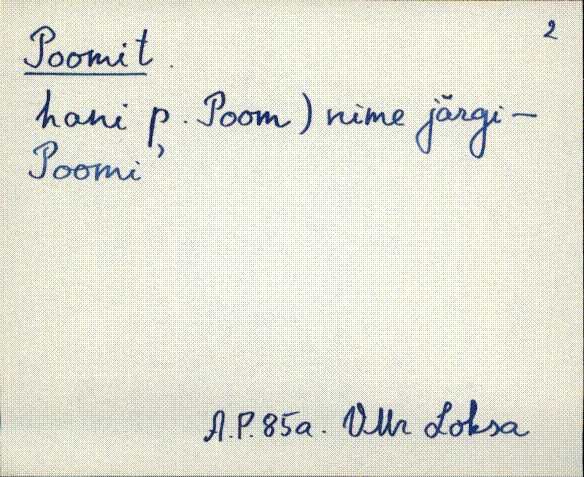 2
Poomit.
hani p. Poom) nime järgi –
Poomi'
A.P. 85a. VMr Loksa